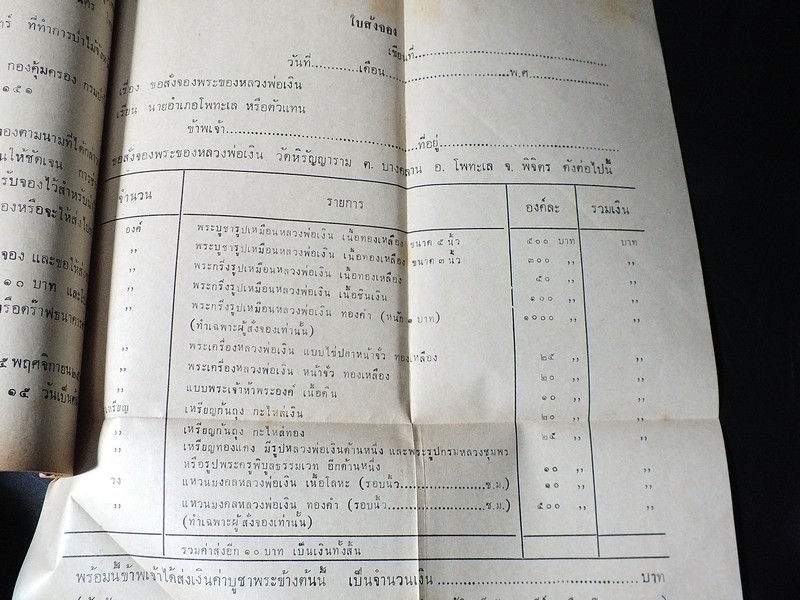 ใบสั่งจอง
เขียนที่
วันที่............เดือน............................พ.ศ.....................
เรื่อง ขอสั่งจองพระของหลวงพ่อเงิน
เรียน นายอำเภอโพทะเล หรือตัวแทน
ข้าพเจ้า............................................ที่อยู่...................................
ขอสั่งจองพระของหลวงพ่อเงิน วัดหิรัญญาราม ต. บางคลาน อ. โพทะเล จ. พิจิตร ดังต่อไปนี้
จำนวน รายการ องค์ละ รวมเงิน
องค์ พระบูชารูปเหมือนหลวงพ่อเงิน เนื้อทองเหลือง ขนาด ๕ นิ้ว ๕๐๐ บาท บาท
,, พระบูชารูปเหมือนหลวงพ่อเงิน เนื้อทองเหลือง ขนาด ๓ นิ้ว ๓๐๐ ,, ,,
,, พระกริ่งรูปเหมือนหลวงพ่อเงิน เนื้อทองเหลือง ๕๐ ,, ,,
,, พระกริ่งรูปเหมือนหลวงพ่อเงิน เนื้อชินเงิน ๑๐๐ ,, ,,
,, พระกริ่งรูปเหมือนหลวงพ่อเงิน ทองคำ (หนัก ๑ บาท) ๑๐๐๐ ,, ,,
(ทำเฉพาะผู้สั่งจองเท่านั้น)
,, พระเครื่องหลวงพ่อเงิน แบบไข่ปลาหน้าจั่ว ทองเหลือง ๒๕ ,, ,,
,, พระเครื่องหลวงพ่อเงิน หน้าจั่ว ทองเหลือง ๒๐ ,, ,,
,, แบบพระเจ้าห้าพระองค์ เนื้อดิน ๑๐ ,, ,,
เหรียญ เหรียญก้นถุง กะไหล่เงิน ๒๐ ,, ,,
,, เหรียญก้นถุง กะไหล่ทอง ๒๕ ,, ,,
,, เหรียญทองแดง มีรูปหลวงพ่อเงินด้านหนึ่ง และพระรูปกรมหลวงชุมพร
หรือรูปพระครูพิบูลธรรมเวท อีกด้านหนึ่ง ๑๐ ,, ,,
วง แหวนมงคลหลวงพ่อเงิน เนื้อโลหะ (รอบนิ้ว......................ซ.ม.) ๑๐ ,, ,,
,, แหวนมงคลหลวงพ่อเงิน ทองคำ (รอบนิ้ว......................ซ.ม.) ๕๐๐ ,, ,,
(ทำเฉพาะผู้สั่งจองเท่านั้น)
รวมค่าส่งอีก ๑๐ บาท เป็นเงินทั้งสิ้น
พร้อมนี้ข้าพเจ้าได้ส่งเงินค่าบูชาพระข้างต้นนี้ เป็นจำนวนเงิน........................................บาท
ที่ทำการป่าไม้
กองคุ้มครอง
๑๕๑
จองตามนามที่ได้
ให้ชัดเจน
จอง และขอให้
๑๐ บาท
๕ พฤศจิกายน
๑๕ วันเป็น